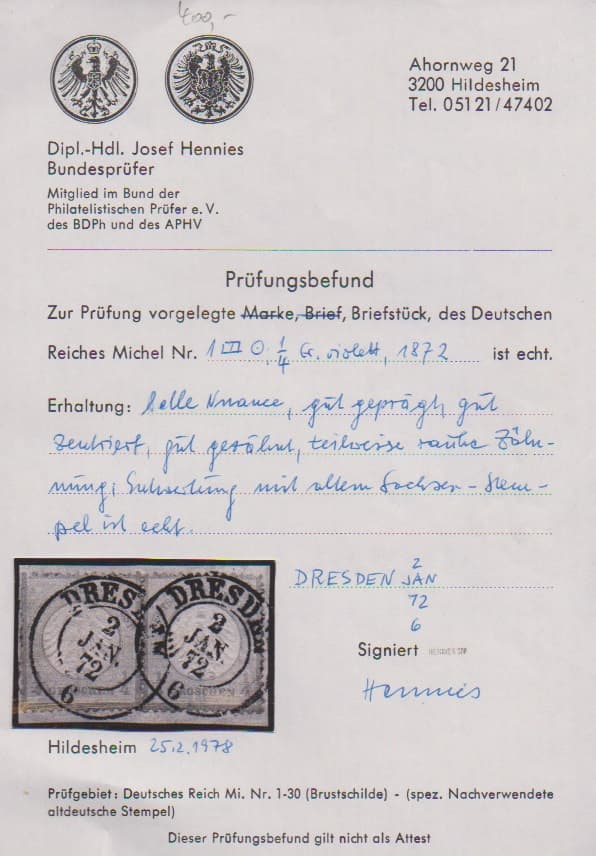 400,-
Ahornweg 21
3200 Hildesheim
Tel. 05121/47402
Dipl.-Hdl. Josef Hennies
Bundesprüfer
Mitglied im Bund der
Philatelistischen Prüfer e. V.
des BDPh und des APHV
Prüfungsbefund
Zur Prüfung vorgelegte Marke, Brief, Briefstück, des Deutschen
Reiches Michel Nr. 1 III ⊙, 1/4 Gr. violett, 1872 ist echt.
Erhaltung: helle Nuance, gut geprägt, gut
zentriert, gut gezähnt, teilweise rauhe Zäh-
nung; Entwertung mit altem Sachsen-Stem-
pel ist echt.
DRESDEN 2
JAN
72
6
DRESDEN
2
JAN.
72
6
DRESDEN
2
JAN.
72
6
GROSCHEN
Signiert HENNIES BPP
Hennies
Hildesheim 25.2.1978
Prüfgebiet: Deutsches Reich Mi. Nr. 1-30 (Brustschilde) - (spez. Nachverwendete
altdeutsche Stempel)
Dieser Prüfungsbefund gilt nicht als Attest